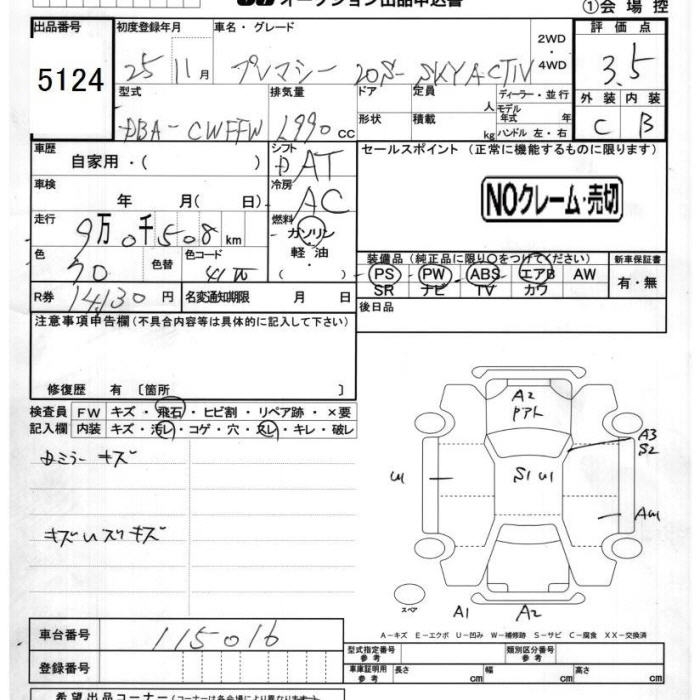 オークション出品申込書 ①会場控
出品番号 初度登録年月 車名・グレード 評価点
5124 25 11月 プレマシー 20S-SKYACTIV 2WD・4WD 3.5
型式 排気量 ドア 定員 人 ディーラー・並行 外装 内装
DBA-CWFFW 1990cc 形状 積載 kg モデル年式 年 ハンドル 左・右 C B
車歴 自家用・( ) シフト AT セールスポイント (正常に機能するものに限ります)
車検 年 月( 日) 冷房 AC NOクレーム・売切
走行 9万0千508km 燃料 ガソリン・軽油・( )
色 色替 色コード 装備品(純正品に限り○をつけてください) 新車保証書
PS PW ABS エアB AW 有・無
SR ナビ TV カワ
R券 14130円 名変通知期限 月 日 後日品
注意事項申告欄(不具合内容等は具体的に記入して下さい)
修復歴 有 〔箇所 〕
検査員 FW キズ・飛石・ヒビ割・リペア跡・×要
記入欄 内装 キズ・汚レ・コゲ・穴・スレ・キレ・破レ
キズ
A2
A3
S2
U1 S1 U1
キズ スリキズ
スペア A1 A2
A-キズ E-エクボ U-凹み W-補修跡 S-サビ C-腐食 XX-交換済
車台番号 115016
型式指定番号 参考 類別区分番号 参考
登録番号 車庫証明用 参考 長さ cm 幅 cm 高さ cm
希望出品コーナー(コーナー名は各会場により異なりま